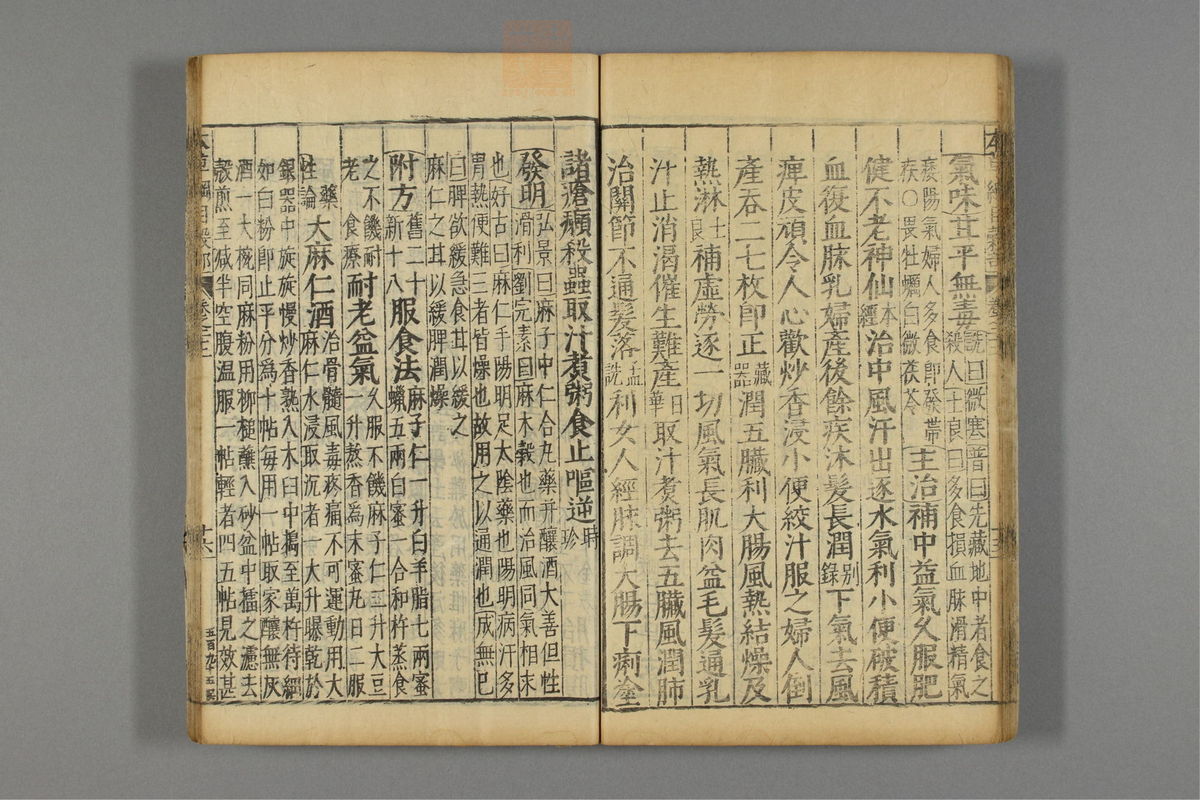 氣味甘平無毒詵曰微寒普曰先藏地中者食之殺人士良曰多食損血脉滑精氣
痿陽氣婦人多食即發帶疾○畏牡蠣白微茯苓主治補中益氣久服肥
健不老神仙本經治中風汗出逐水氣利小便破積
血復血脉乳婦產後餘疾沐髮長潤別錄下氣去風
痺皮頑令人心歡炒香浸小便絞汁服之婦人倒
產吞二七枚即正藏器潤五臟利大腸風熱結燥及
熱淋士良補虛勞逐一切風氣長肌肉益毛髮通乳
汁止消渴催生難產日華取汁煮粥去五臟風潤肺
治關節不通髮落孟詵利女人經脉調大腸下痢塗
諸瘡癩殺蟲取汁煮粥食止嘔逆時珍
發明弘景曰麻子中仁合丸藥并釀酒大善但性滑利劉完素曰麻木穀也而治風同氣相求
也好古曰麻仁手陽明足太陰藥也陽明病汗多胃熱便難三者皆燥也故用之以通潤也成無已
曰脾欲緩急食甘以緩之麻仁之甘以緩脾潤燥
附方舊二十新十八服食法麻子仁一升白羊脂七兩蜜蠟五兩白蜜一合和杵蒸食
之不饑耐老食療耐老益氣久服不饑麻子仁二升大豆一升熬香為末蜜丸日二服
藥性論大麻仁酒治骨髓風毒疼痛不可運動用大麻仁水浸取沉者一大升曝乾於
銀器中旋旋慢炒香熟入木臼中搗至萬杵待細如白粉即止平分為十帖每用一帖取家釀無灰
酒一大椀同麻粉用柳槌蘸入砂盆中擂之濾去殼煎至減半空腹溫服一帖輕者四五帖見效甚
本草綱目穀部